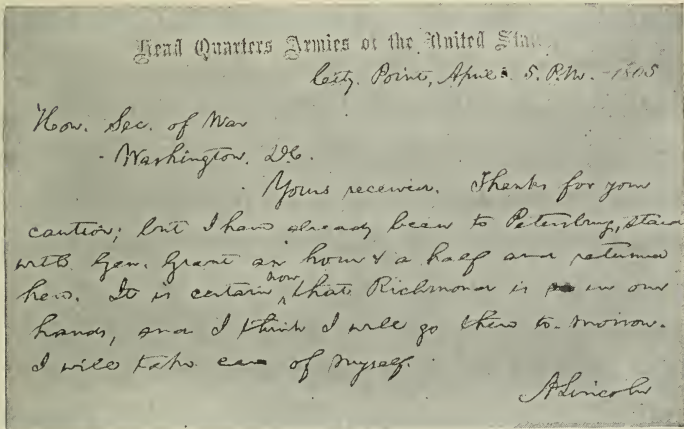 Head Quarters Armies of the United
City Point, April 5. P.M. 1865
Hon. Sec. of War
Washington, D.C.
Yours received. Thanks for your
caution; but I have already been to Petersburg, staid
with Gen. Grant an hour & a half and returned
here. It is certain now that Richmond is in our
hands, and I think I will go there to-morrow.
I will take care of myself.
A. Lincoln